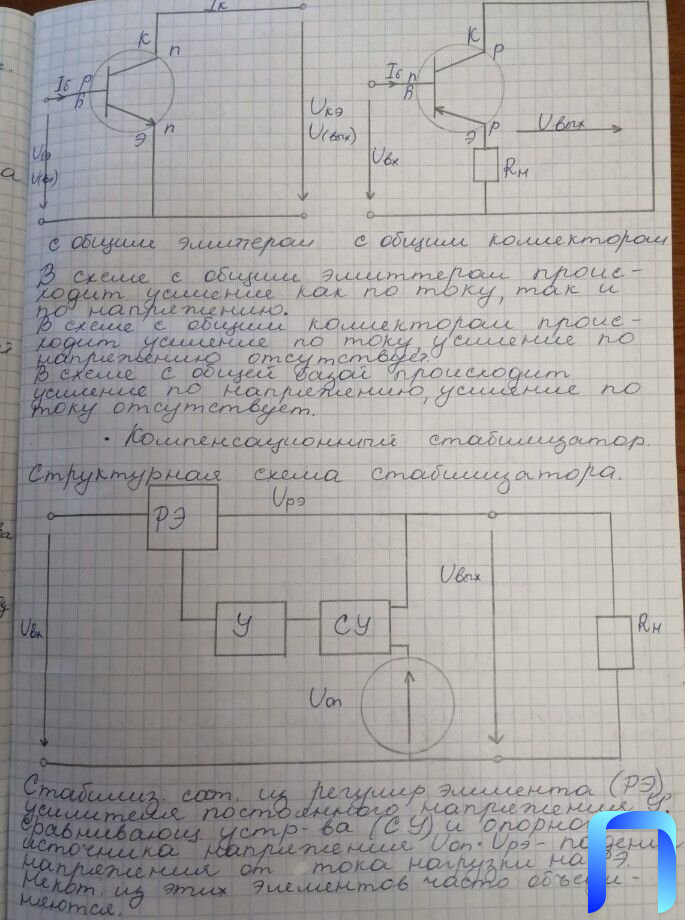 Iк
К п
Iб р
Б
Э п
Uкэ
U(вых)
Uбэ
U(вх)
К р
Iб п
Б
Э р
Uвых
Uвх
Rн
с общим эмиттером с общим коллектором
В схеме с общим эмиттером проис-
ходит усиление как по току, так и
по напряжению.
В схеме с общим коллектором проис-
ходит усиление по току, усиление по
напряжению отсутствует.
В схеме с общей базой происходит
усиление по напряжению, усиление по
току отсутствует.
• Компенсационный стабилизатор.
Структурная схема стабилизатора.
Uрэ
РЭ
Uвых
Uвх
У
СУ
Rн
Uоп
Стабилиз. сост. из регулир элемента (РЭ)
усилителя постоянного напряжения У,
сравнивающ устр-ва (СУ) и
источника напряжения Uоп. Uрэ-
напряжения от тока нагрузки на РЭ.
Некот. из этих элементов часто объеди-
няются.